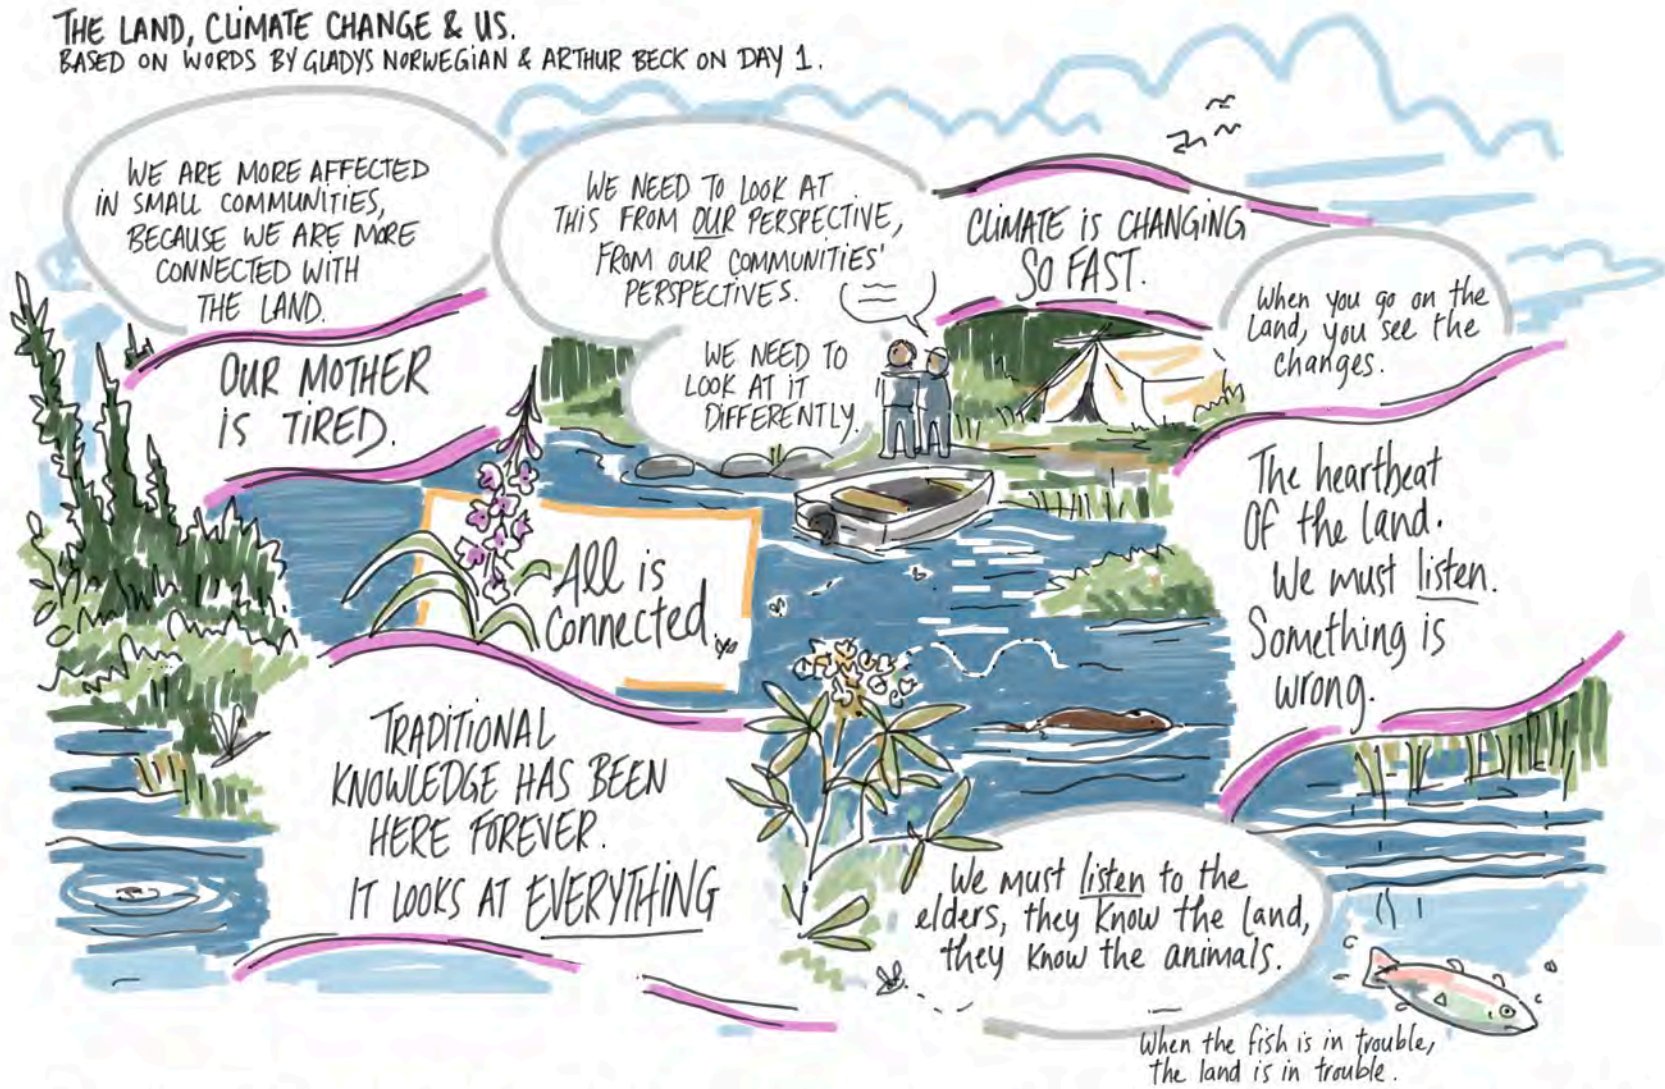 THE LAND, CLIMATE CHANGE & US.
BASED ON WORDS BY GLADYS NORWEGIAN & ARTHUR BECK ON DAY 1.
WE ARE MORE AFFECTED
IN SMALL COMMUNITIES,
BECAUSE WE ARE MORE
CONNECTED WITH
THE LAND.
WE NEED TO LOOK AT
THIS FROM OUR PERSPECTIVE,
FROM OUR COMMUNITIES'
PERSPECTIVES.
WE NEED TO
LOOK AT IT
DIFFERENTLY.
CLIMATE IS CHANGING
SO FAST.
When you go on the
Land, you see the
changes.
OUR MOTHER
IS TIRED.
All is
Connected.
The heartbeat
Of the land.
We must listen.
Something is
wrong.
TRADITIONAL
KNOWLEDGE HAS BEEN
HERE FOREVER.
IT LOOKS AT EVERYTHING
We must listen to the
elders, they know the land,
they know the animals.
When the fish is in trouble,
the land is in trouble.